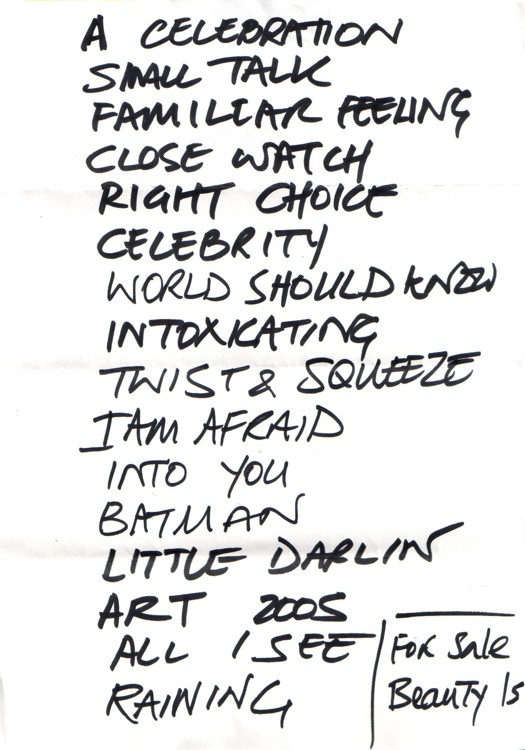 A CELEBRATION
SMALL TALK
FAMILIAR FEELING
CLOSE WATCH
RIGHT CHOICE
CELEBRITY
WORLD SHOULD KNOW
INTOXICATING
TWIST & SQUEEZE
I AM AFRAID
INTO YOU
BATMAN
LITTLE DARLIN
ART 2005
ALL I SEE
RAINING
FOR Sale
BEAUTY IS